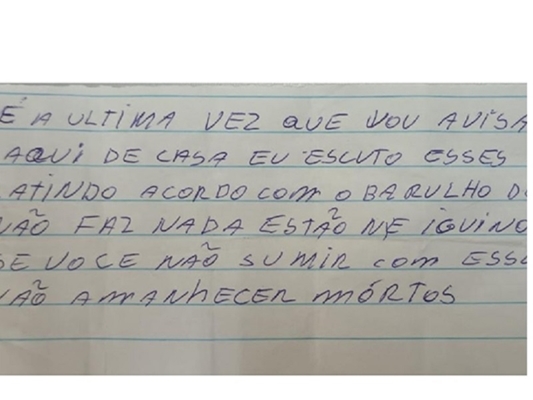 É A ULTIMA VEZ QUE VOU AVISA
AQUI DE CASA EU ESCUTO ESSES
ATINDO ACORDO COM O BARULHO D
NÃO FAZ NADA ESTÃO ME
SE VOCE NÃO SUMIR COM ESS
VÃO AMANHECER MÓRTOS